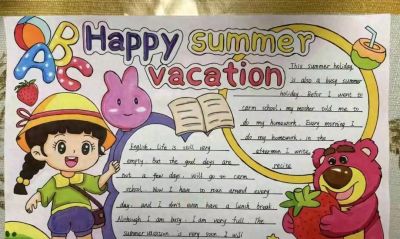 ABC
Happy summer
vacation
This summer holiday
is also a busy summer
holiday. Befor I went to
carm school, my mother told me to
do my homework. Every morning I
do my homework, in the
afternoon I write
recise
English, life is still very
empty. But the good days are
out a few days, I will go to carm
school. Now I have to run around every
day and I don't even have a lunch break.
Although I am busy, I am very full. The
summer vacation is very soon. I will